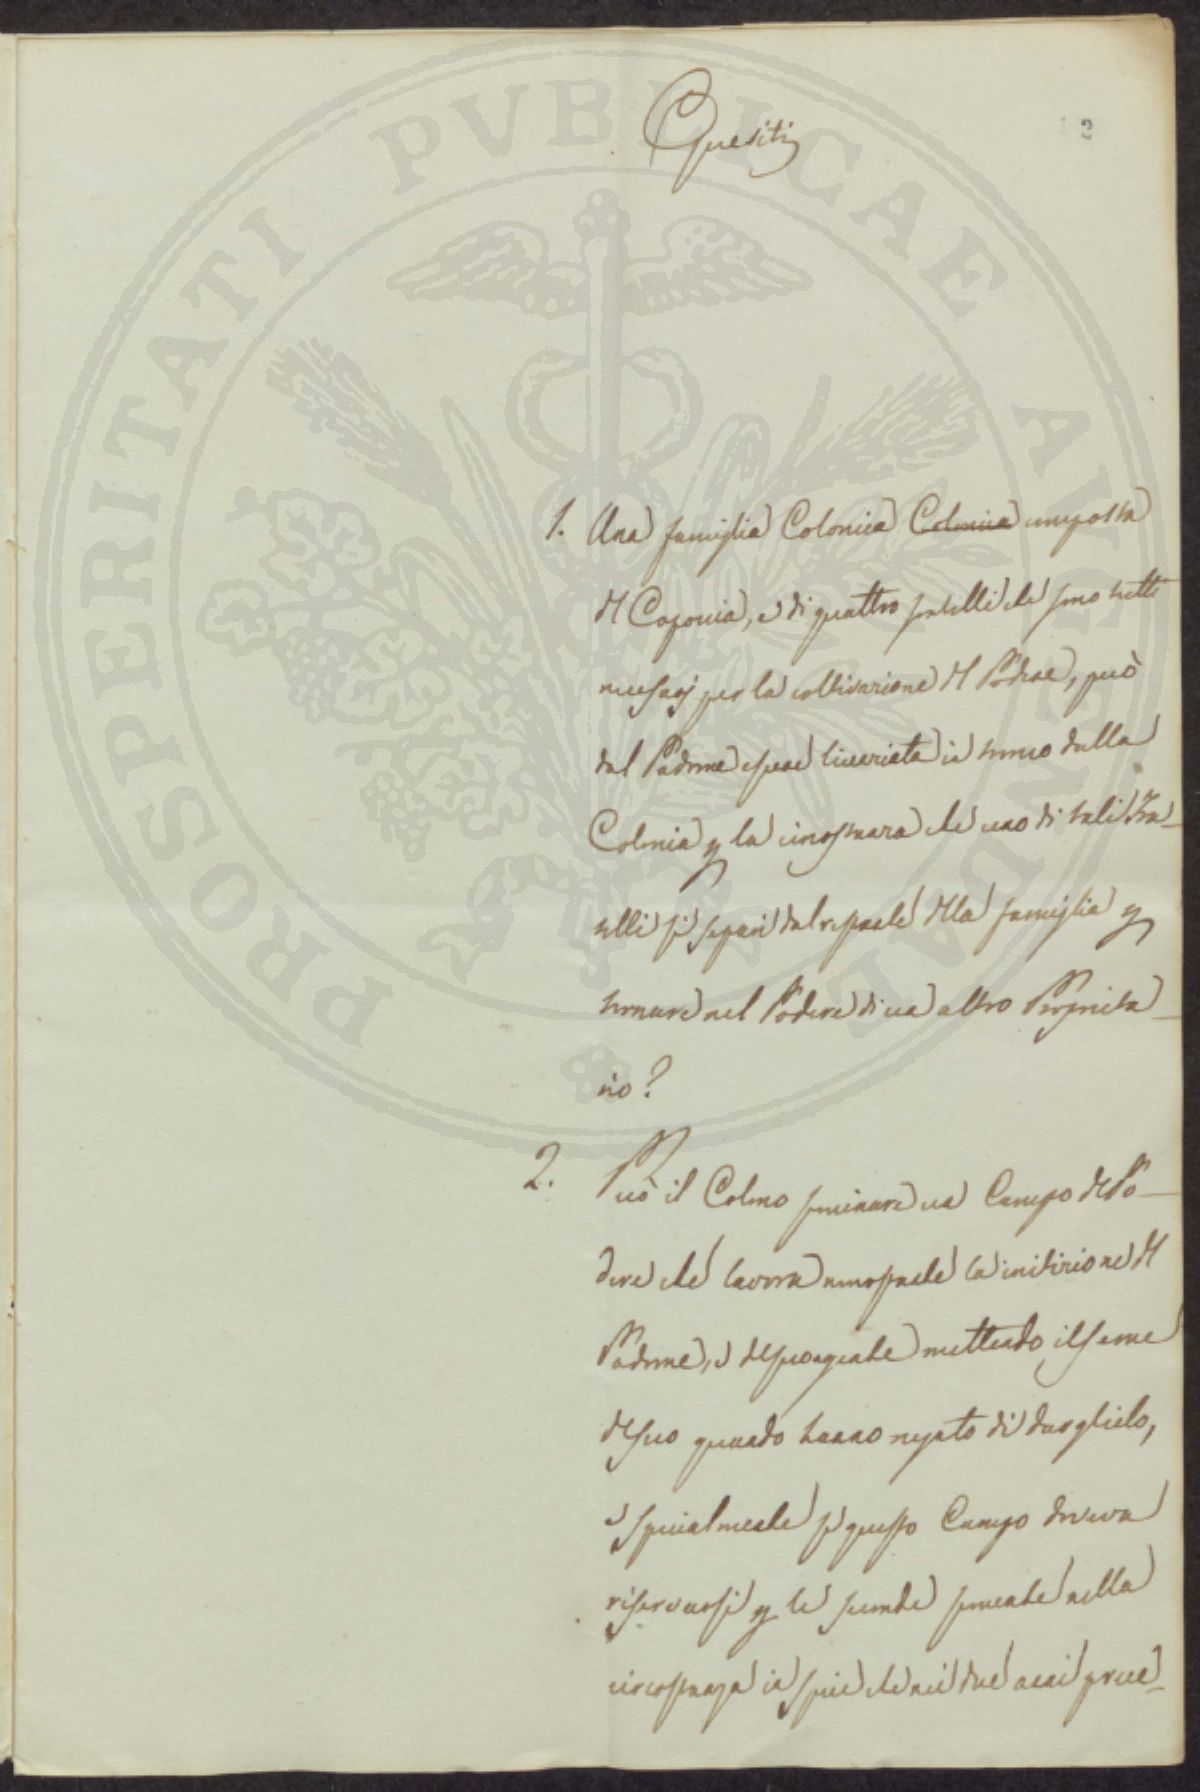 Quesiti
2
1. Una famiglia Colonica Colonica composta
del Caponia, e di quattro fratelli che sono tutti
necessarj per la coltivazione del Podere, può
dal Padrone essere licenziata in tronco dalla
Colonia p la circostanza che uno di tali Fra-
telli si separi dal restante della famiglia p
tornare nel Podere di un altro Proprieta-
rio?
2. Può il Colono seminare un Campo del Po-
dere che lavora nonostante la inibizione del
Padrone, e del suo Agente mettendo il seme
del suo quando hanno negato di darglielo,
e specialmente se questo Campo doveva
riservarsi p le seconde semente nella
circostanza in specie che nei due anni prece-
PROSPERITATI PUBLICAE AUGENDAE